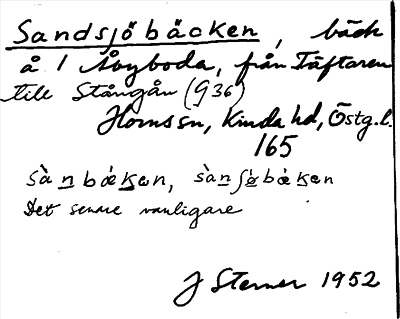 Sandsjöbäcken, bäck
å 1 Åbyboda, från Täftaren
till Stångån (936)
Horns sn, Kinda hd, Östg.l.
165
sànbæken, sànsjøbæken
Det senare vanligare
J Sterner 1952